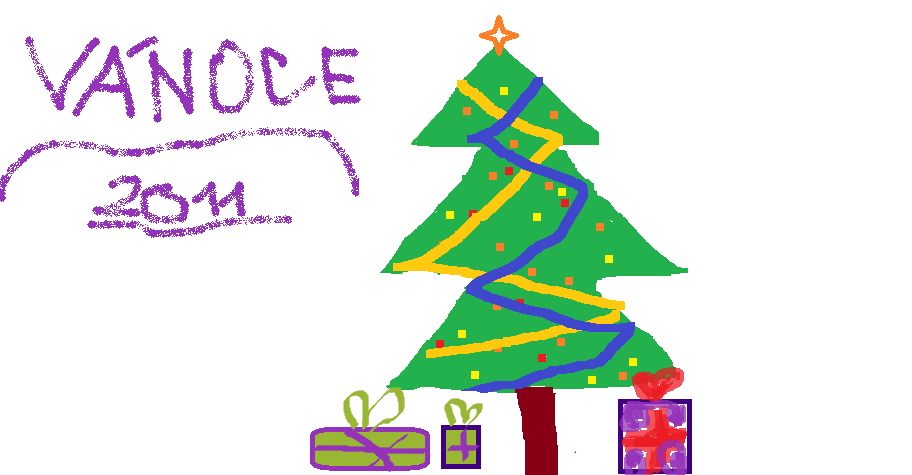 VÁNOCE
2011